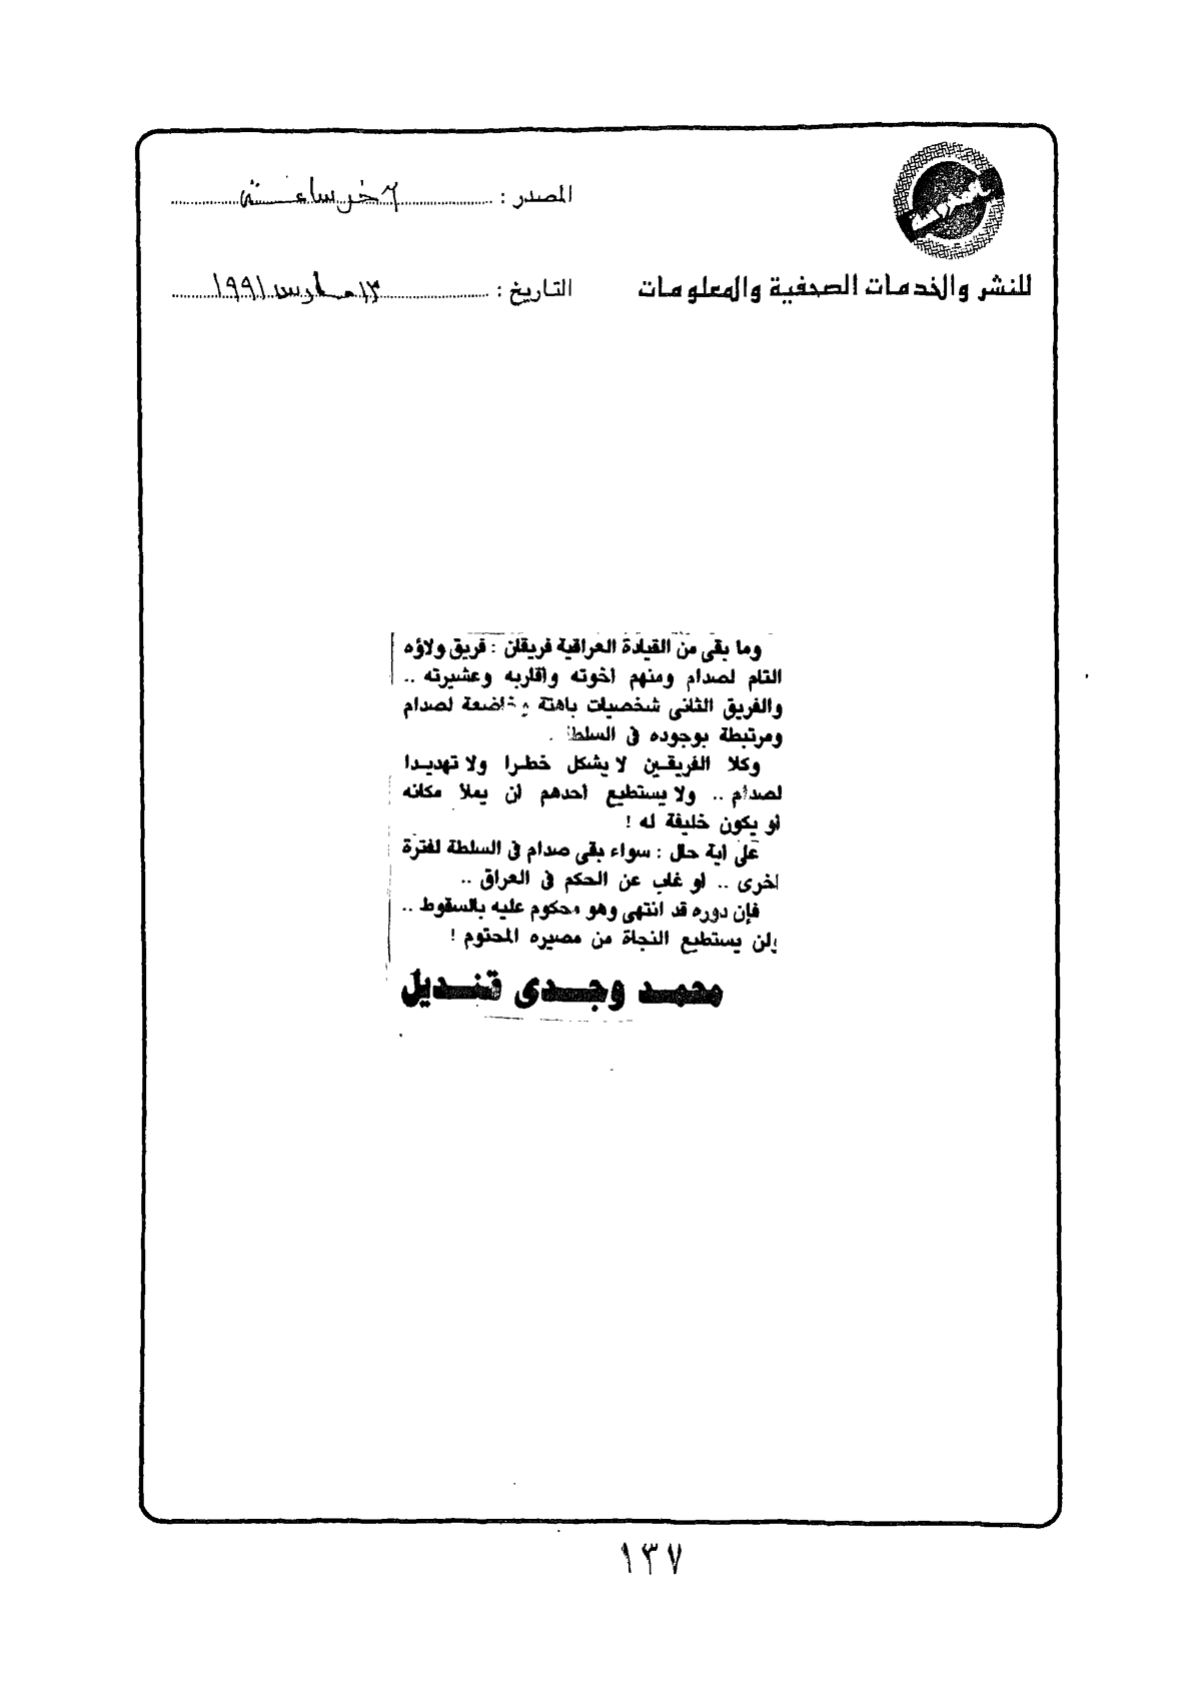 المصدر : آخر ساعة
للنشر والخدمات الصحفية والمعلومات
التاريخ : ١٣ مارس ١٩٩١
وما بقى من القيادة العراقية فريقان : فريق ولاؤه
التام لصدام ومنهم اخوته واقاربه وعشيرته ..
والفريق الثانى شخصيات باهتة وخاضعة لصدام
ومرتبطة بوجوده فى السلطة .
وكلا الفريقين لا يشكل خطرا ولا تهديدا
لصدام .. ولا يستطيع احدهم ان يملأ مكانه
او يكون خليفة له !
على اية حال : سواء بقى صدام فى السلطة لفترة
اخرى .. او غاب عن الحكم فى العراق ..
فإن دوره قد انتهى وهو محكوم عليه بالسقوط ..
ولن يستطيع النجاة من مصيره المحتوم !
محمد وجدى قنديل
١٣٧